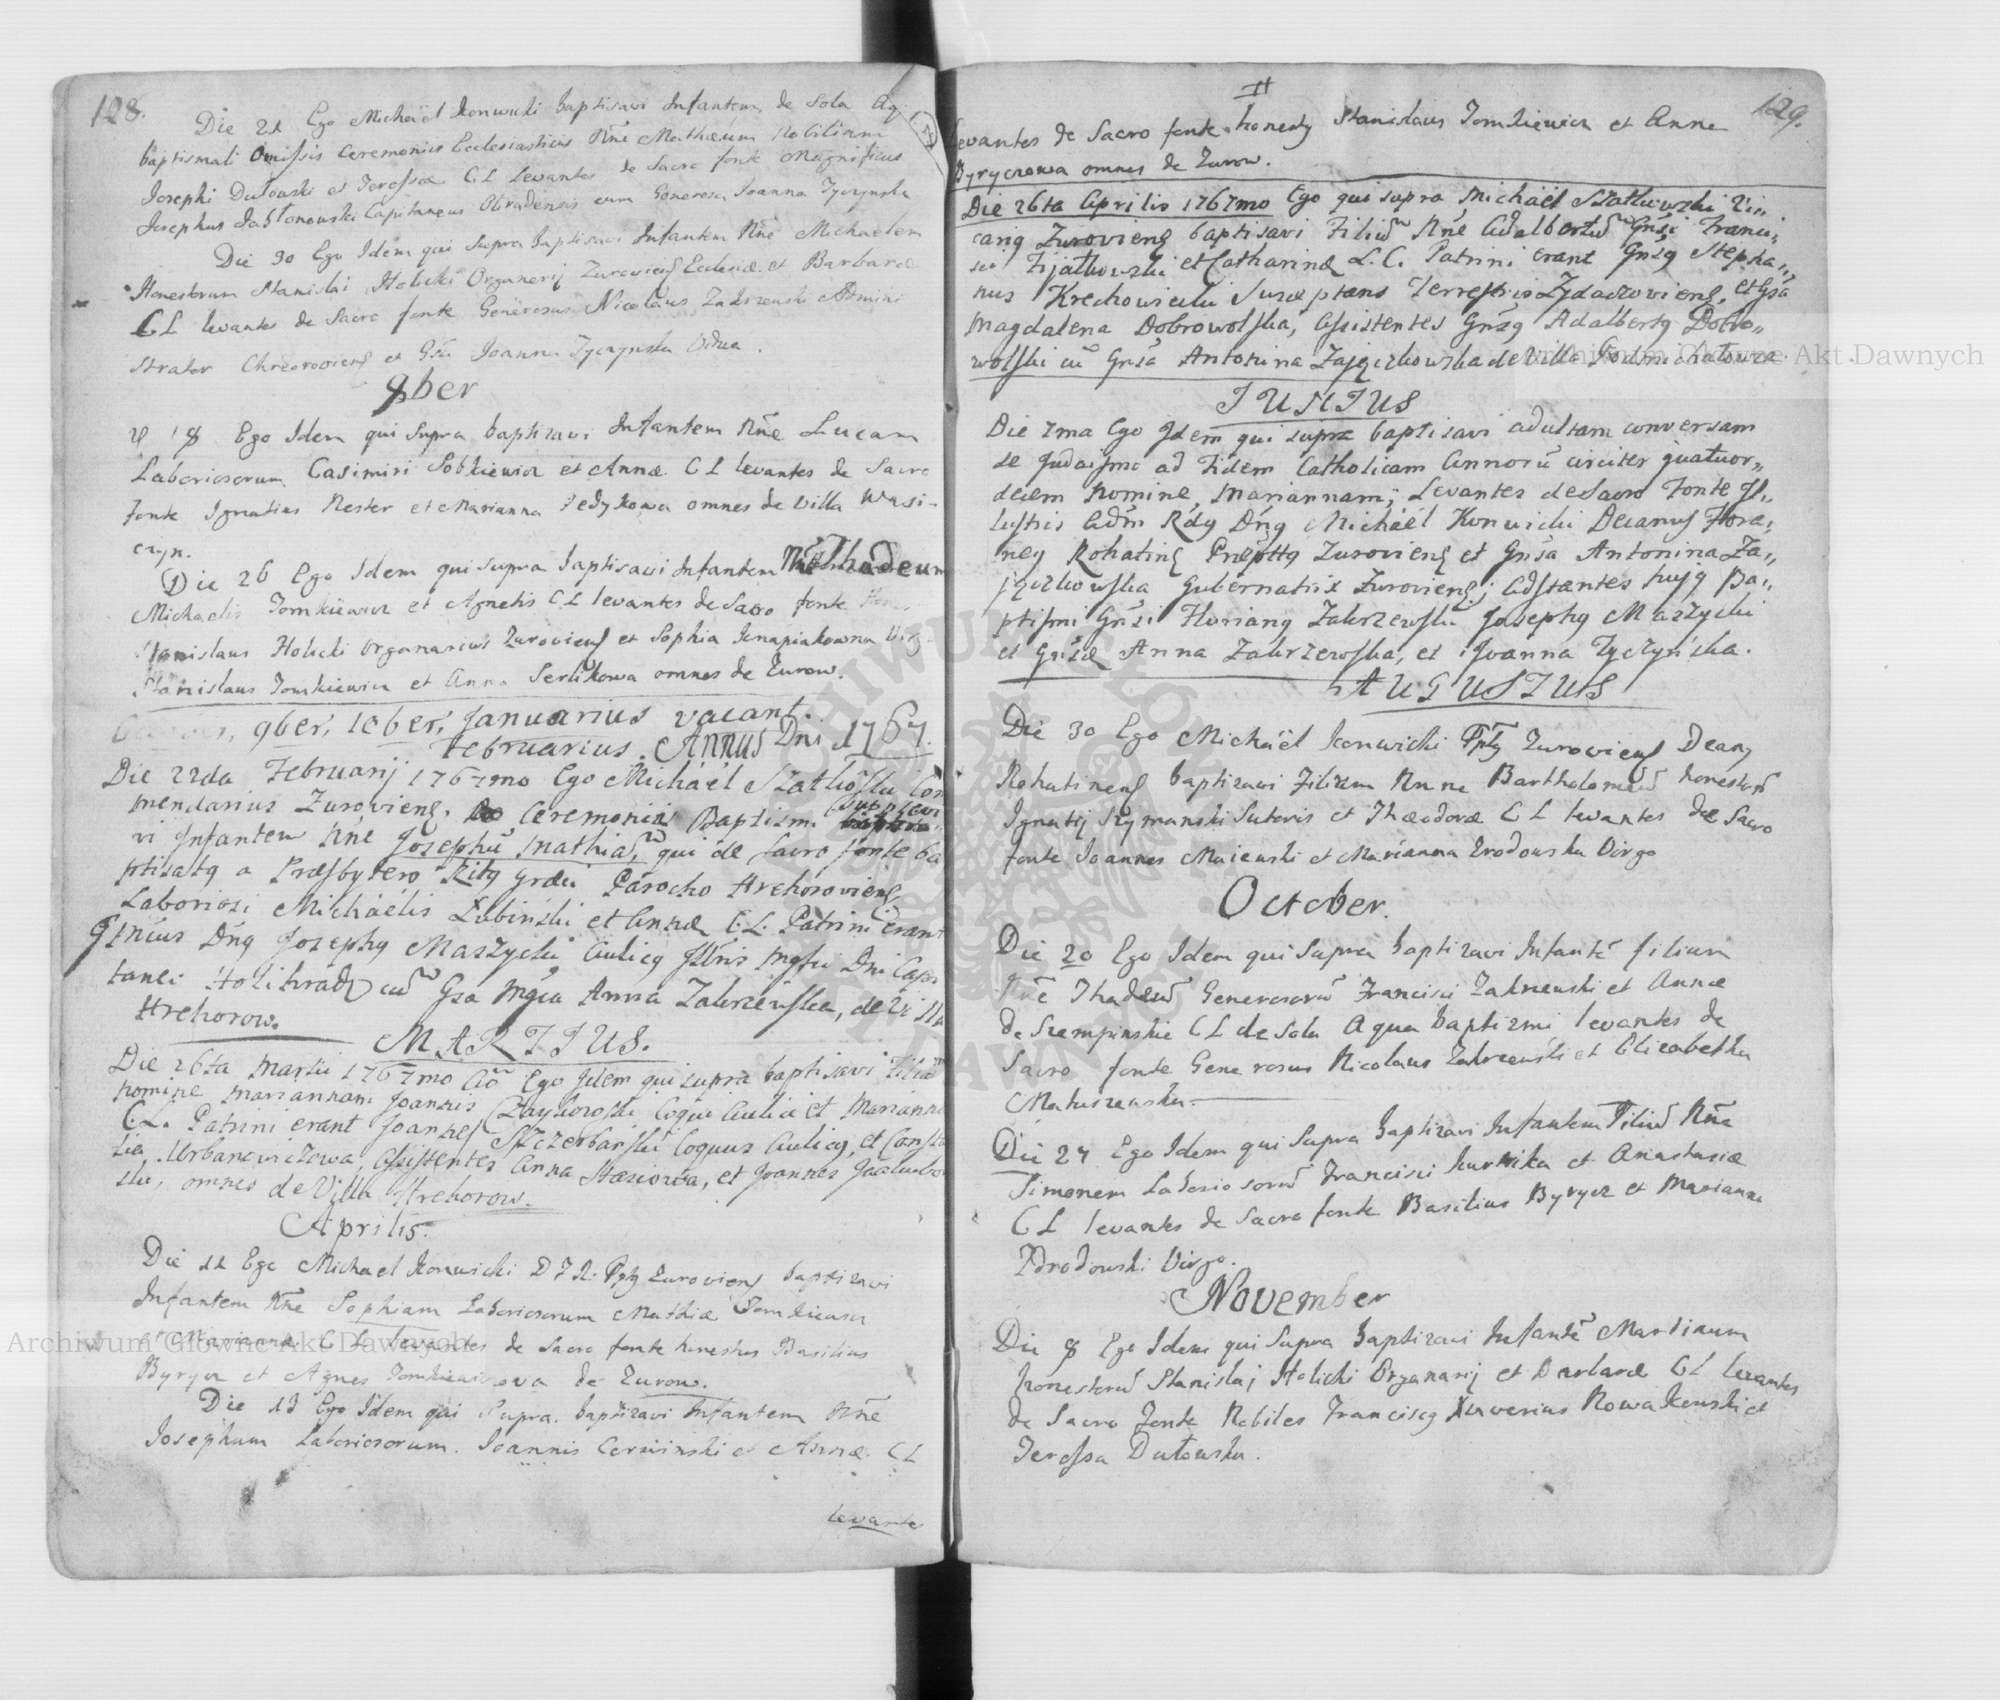 128.
Die 21 Ego Michaël Konwicki baptisavi Infantem, de Sola Aq
baptismali Omissis Ceremoniis Ecclesiasticis Nñe Mathæum Nobilium
Josephi Dutowski et Teressæ C L Levantes de Sacro fonte Magnificus
Josephus Jabłonowski Capitaneus cum Generosa Joanna Tyczynska
Die 30 Ego Idem qui Supra baptisavi Infantem Nñe Michaelem
Honestorum Stanislai Holicki Organarij Zuroviens Ecclesiæ et Barbaræ
C L levantes de Sacro fonte Generosus Nicolaus Zakrzewski Admini
strator et Gsa Joanna Tyczynska Vidua.
8ber
18 Ego Idem qui Supra baptizavi Infantem Nñe Lucam
Laboriosorum Casimiri Sobkiewicz et Annæ C L levantes de Sacro
fonte Ignatius Nester et Marianna Fedykowa omnes de villa Wasi-
czyn.
Die 26 Ego Idem qui supra baptisavi Infantem Nñe Thadeum
Michaelis Tomkiewicz et Agnetis C L levantes de Sacro fonte
Stanislaus Holicki organarius Zuroviens et Sophia Knapiakowna Virg
Stanislaus Tomkiewicz et Anna Serlikowa omnes de Zurow.
9ber, 10ber, Januarius vacant.
Februarius. Annus Dni 1767.
Die 22da Februarij 1767mo Ego Michaël Szatkoski Com
mendarius Zuroviens. Ceremonii Baptism supplevi
vi Infantem Nñe Josephũ Mathiã, qui de sacro fonte ba
ptisatq a Presbytero Ritq græci Parocho Hrehoroviens
Laboriosi Michaëlis Lubinski et Annæ C.L. Patrini erant
Gsnius Dnq Josephq Maszycki Aulicq Illris Mgfici Dni Capi
tanei Holihradz cũ Gsa Mgca Anna Zakrzewska, de Villa
Hrehorow.
MARTIUS.
Die 26ta Martii 1767mo Aõ Ego Idem qui supra baptisavi Filiã
nomine Mariannam Joannis Coqui Aulici et Mariannæ
C.L. Patrini erant Joannes Szczerbanski Coquus Aulicq, et Consta
tia Urbanowiczowa, Assistentes Anna Stasiowa, et Joannes
ski, omnes de Villa Hrehorow.
Aprilis.
Die 12 Ego Michael Konwicki D F R. Pptq Zuroviens baptizavi
Infantem Nñe Sophiam Laboriosorum Mathiæ Tomkiewicz
et Mariannæ C L levantes de Sacro fonte honestus Basilius
Byrycz et Agnes Tomkiewiczowa de Zurow.
Die 13 Ego Idem qui Supra baptizavi Infantem Nñe
Josephum Laboriosorum Joannis Cerwinski et Annæ C L
levante
129.
Levantes de Sacro fonte honesty Stanislaus Tomkiewicz et Anna
Byryczowa omnes de Zurow.
Die 26ta Aprilis 1767mo Ego qui supra Michaël Szatkowski Vi„
cariq Zuroviens baptisavi Filiũ Nñe Adalbertũ Gnsi Franci„
sci Fijałkowski et Catharinæ L. C. Patrini erant Gnsq Stepha„
nus Krechowiecki Susceptans Terrestris Zydaczoviens, et Gsa
Magdalena Dobrowolska, Assistentes Gnsq Adalbertq Dobro„
wolski cũ Gnsa Antonina Zajączkowska de Villa Podmichałowce.
JUNIUS
Die 7ma Ego Idem qui supra baptisavi adultam conversam
de Judaismo ad Fidem Catholicam Annorũ circiter quatuor„
decem Nomine Mariannam; Levantes de Sacro Fonte Il„
lustris Adm Rdq Dnq Michaël Konwicki Decanus Fora„
neq Rohatins Præpttq Zuroviens et Gnsa Antonina Za„
jączkowska Gubernatrix Zuroviens; Adstantes hujq Ba„
ptismi Gnsi Florianq Zakrzewski Josephq Maszycki
et Gnsæ Anna Zakrzewska, et Joanna Tyczyńska.
AUGUSTUS
Die 30 Ego Michaël Konwicki Pptq Zuroviens Decanq
Rohatinens baptizavi Filium Nnne Bartholomeũ honestorũ
Ignatij Szymanski Sutoris et Theodoræ C L levantes de Sacro
fonte Joannes Maiewski et Marianna Zrodowska Virgo
October.
Die 20 Ego Idem qui Supra baptizavi Infantẽ filium
Nñe Thadeũ Generosorũ Francisci Zakrzewski et Annæ
de Szempinskie C L de Sola Aqua baptizmi levantes de
Sacro fonte Generosus Nicolaus Zakrzewski et Elizabetha
Matuszewska.
Die 27 Ego Idem qui Supra baptizavi Infantem Filiũ Nñe
Simonem Laboriosorũ Francisci et Anastasiæ
C L levantes de Sacro fonte Basilius Byrycz et Marianna
Zdrodowski Virgo.
November
Die 8 Ego Idem qui Supra baptizavi Infantẽ Martinum
honestorũ Stanislaj Holicki Organarij et Barbaræ C L levantes
de Sacro Fonte Nobiles Franciscq Xaverius Nowakowski et
Teressa Dutowska.
Archiwum Główne Akt Dawnych
Archiwum Główne Akt Dawnych